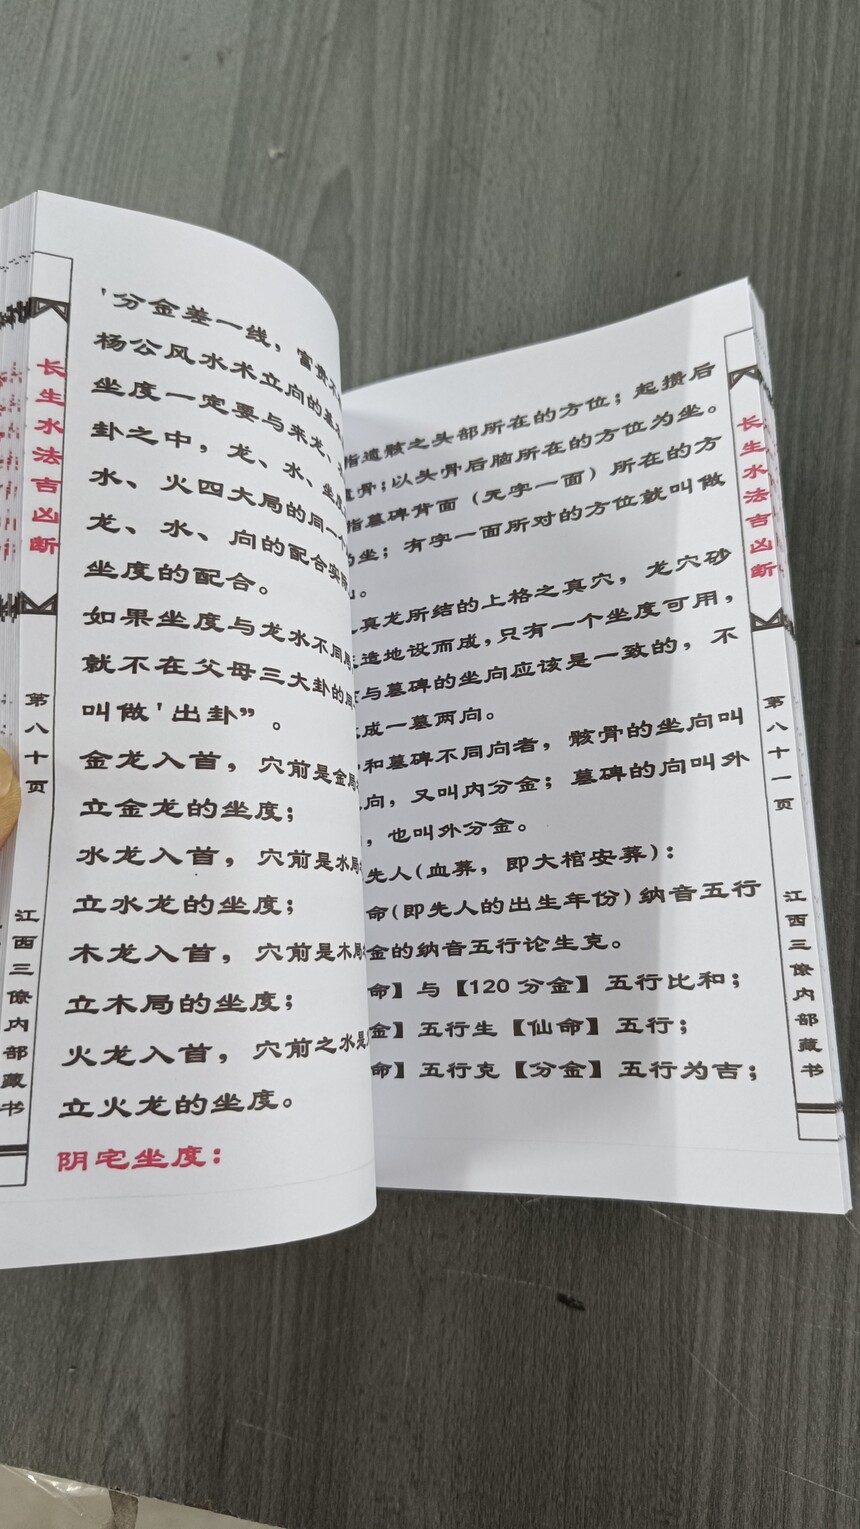 长生水法吉凶断
第八十页
江西三僚内部藏书
'分金差一线，富贵不
杨公风水术立向的基
坐度一定要与来龙、
卦之中，龙、水、坐
水、火四大局的同一个
龙、水、向的配合实际
坐度的配合。
如果坐度与龙水不同局
就不在父母三大卦的
叫做'出卦”。
金龙入首，穴前是金局
立金龙的坐度；
水龙入首，穴前是水局
立水龙的坐度；
木龙入首，穴前是木局
立木局的坐度；
火龙入首，穴前之水是
立火龙的坐度。
阴宅坐度：
指遗骸之头部所在的方位；起攒后
骨；以头骨后脑所在的方位为坐。
指墓碑背面（无字一面）所在的方
的坐；有字一面所对的方位就叫做
。
真龙所结的上格之真穴，龙穴砂
造地设而成，只有一个坐度可用，
与墓碑的坐向应该是一致的，不
成一墓两向。
和墓碑不同向者，骸骨的坐向叫
向，又叫内分金；墓碑的向叫外
，也叫外分金。
先人(血葬，即大棺安葬)：
命(即先人的出生年份)纳音五行
金的纳音五行论生克。
命】与【120分金】五行比和；
金】五行生【仙命】五行；
命】五行克【分金】五行为吉；
长生水法吉凶断
第八十一页
江西三僚内部藏书